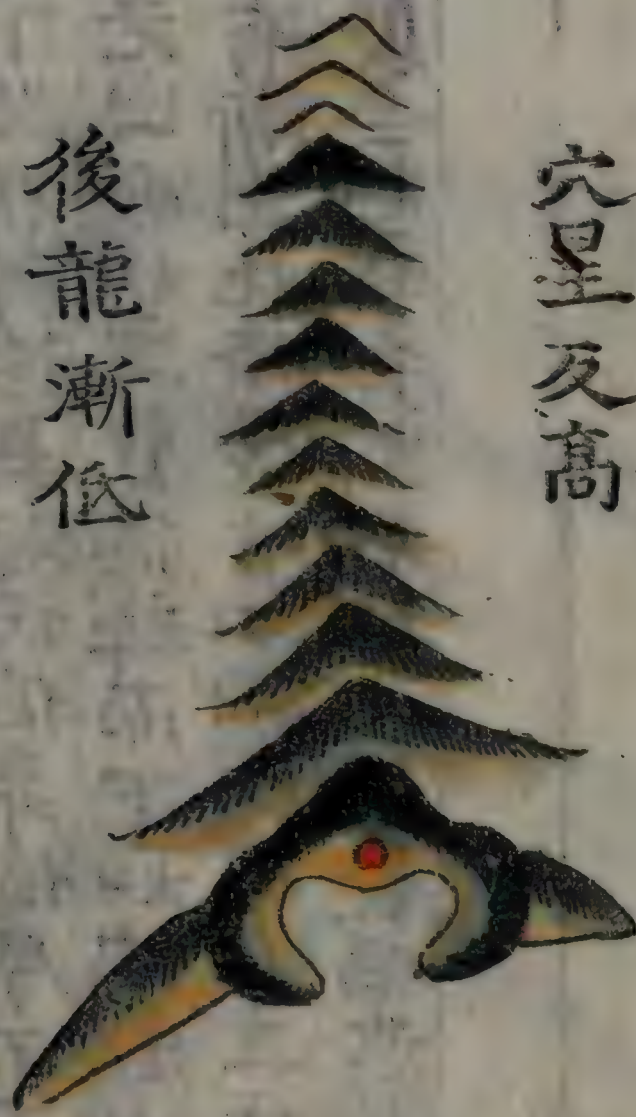 穴星反高
後龍漸低